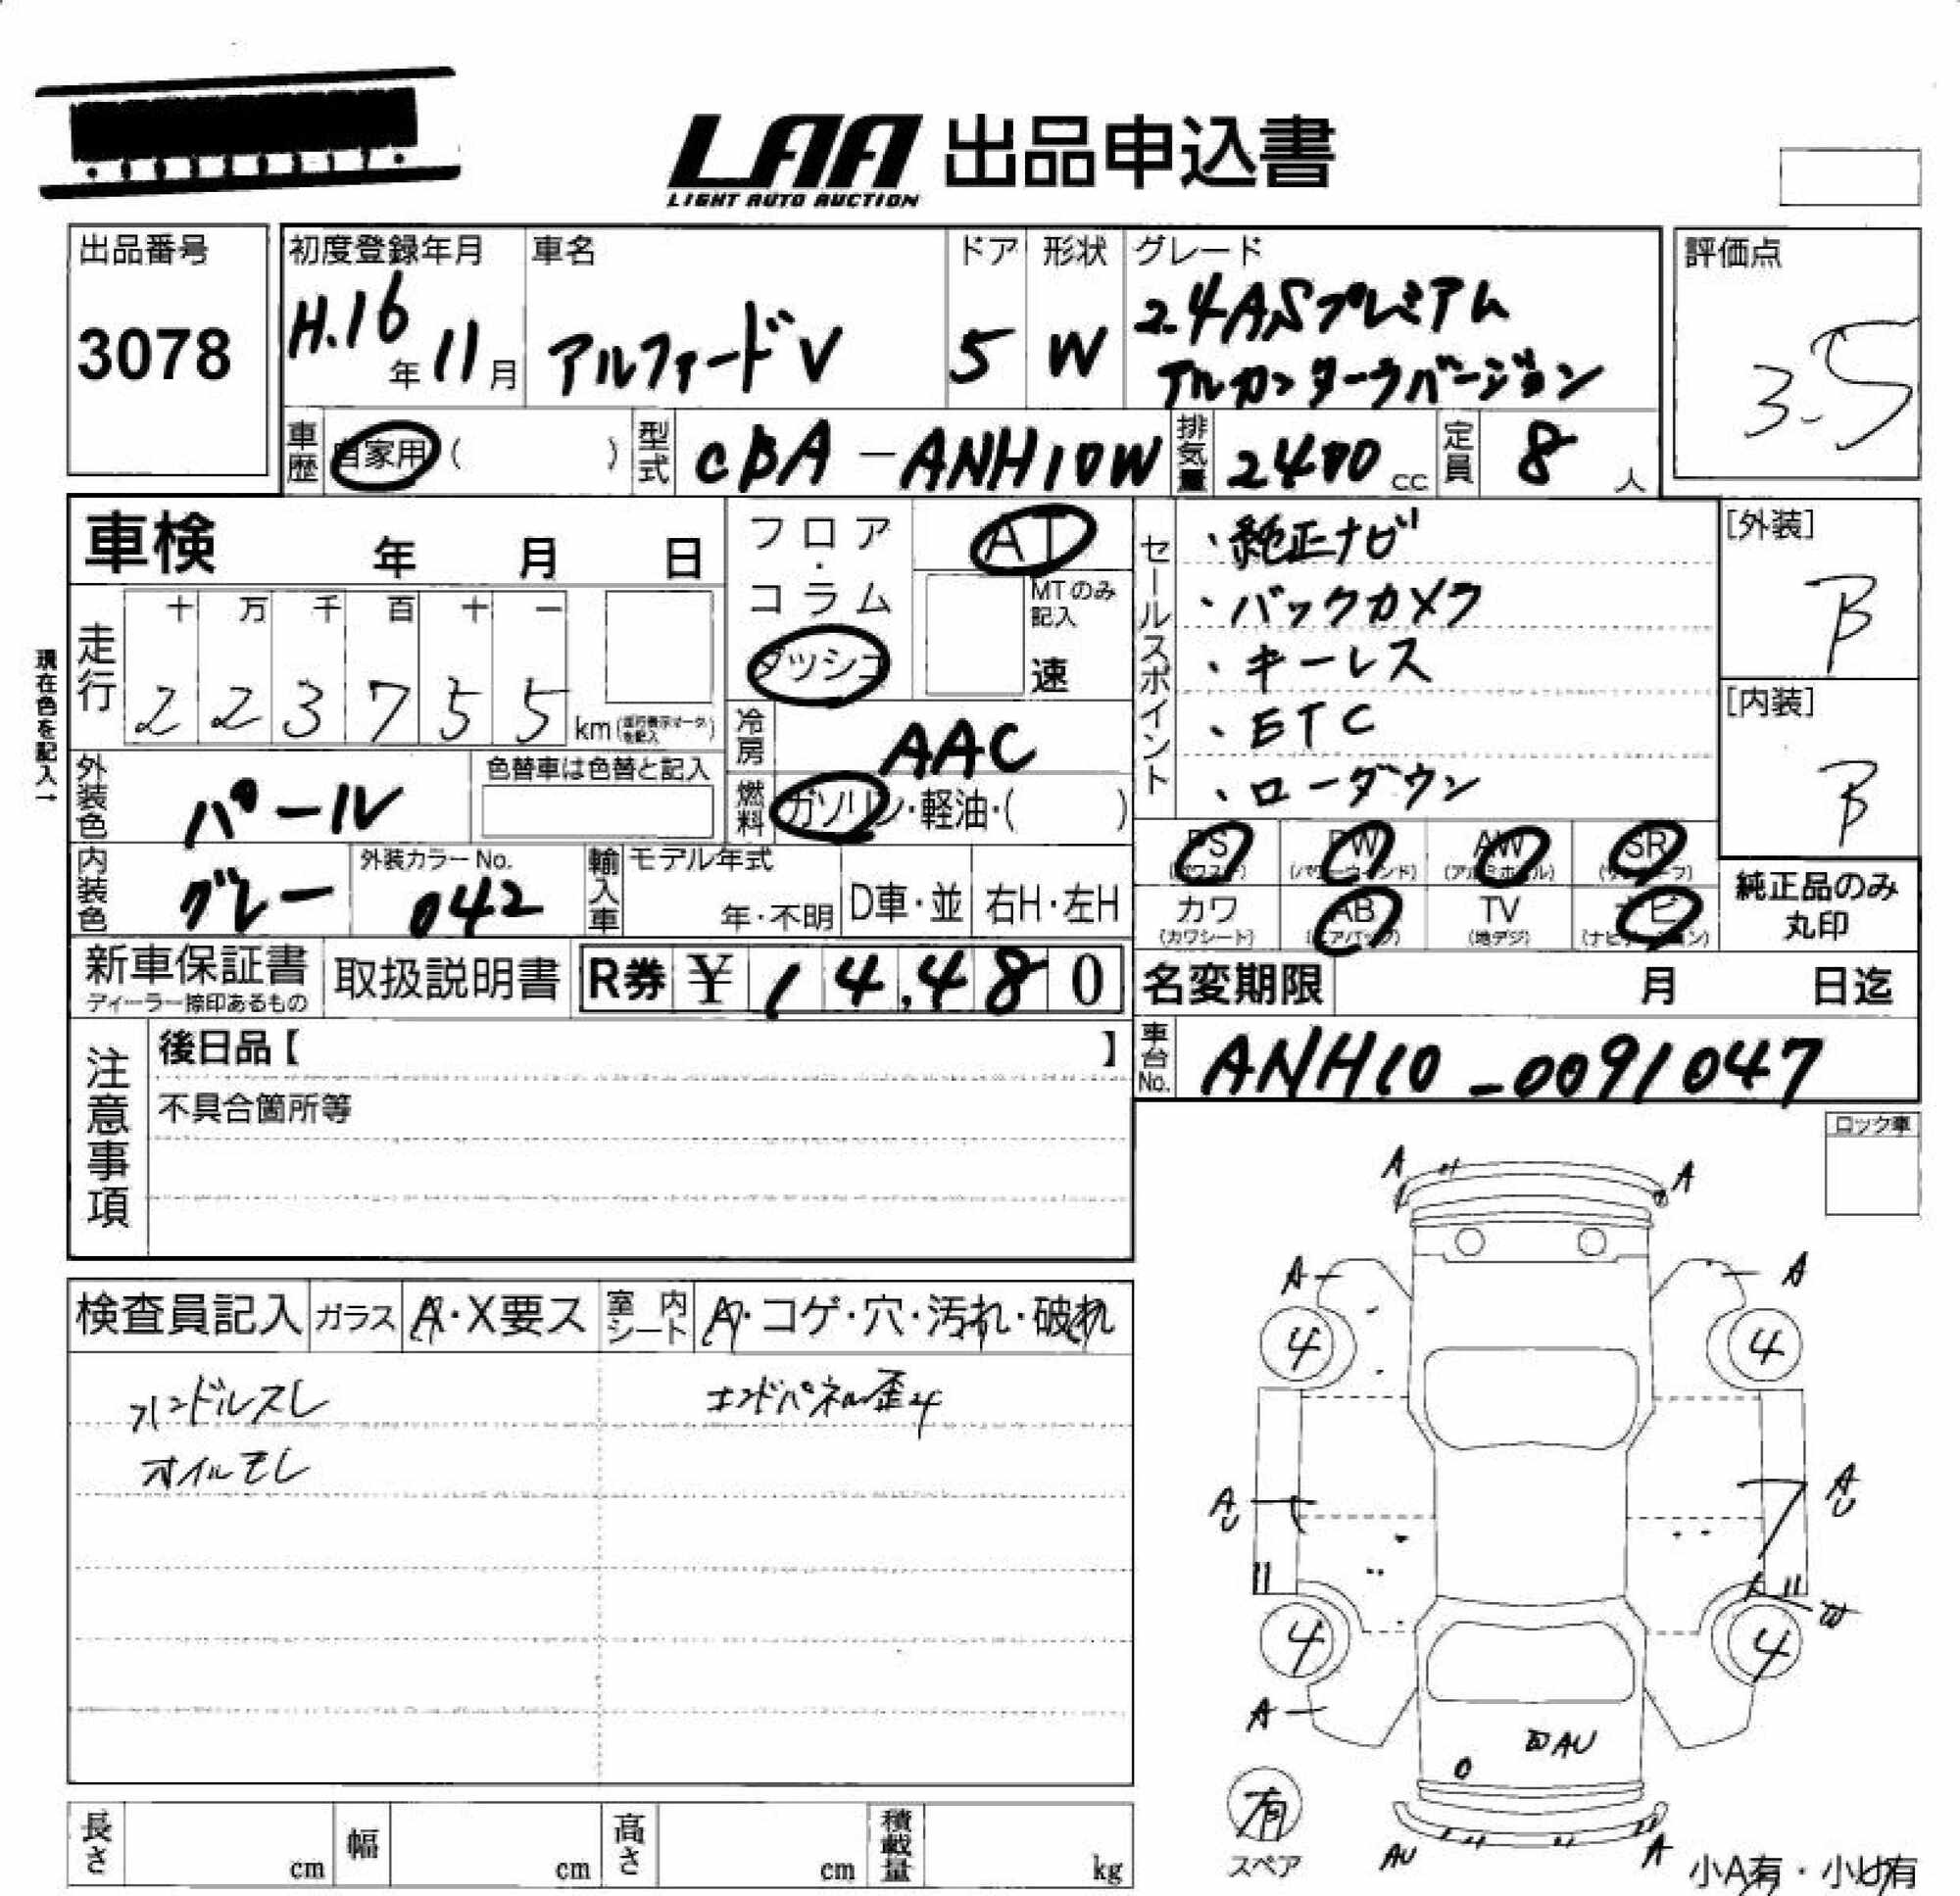 LAA 出品申込書
LIGHT AUTO AUCTION
出品番号
3078
初度登録年月
H.16年 11月
車名
アルファードV
ドア
5
形状
W
グレード
2.4ASプレミアム
アルカンターラバージョン
評価点
3.5
車歴 自家用 ( )
型式 CBA-ANH10W
排気量 2400 cc
定員 8 人
車検 年 月 日
フロア・コラム
ダッシュ
AT
MTのみ記入
速
走行
十 万 千 百 十 一
2 2 3 7 5 5 km
現在色を記入→
冷房 AAC
燃料 ガソリン・軽油・( )
外装色 パール
色替車は色替と記入
内装色 グレー
外装カラーNo.
042
輸入車
モデル年式
年・不明
D車・並
右H・左H
セールスポイント
・純正ナビ
・バックカメラ
・キーレス
・ETC
・ローダウン
[外装]
B
[内装]
B
PS PW AW SR
(パワステ) (パワーウインド) (アルミホイル) (サンルーフ)
カワ AB TV ナビ
(カワシート) (エアバック) (地デジ) (ナビゲーション)
純正品のみ
丸印
新車保証書
ディーラー捺印あるもの
取扱説明書
R券 ¥ 14,480
名変期限 月 日迄
車台No. ANH10-0091047
注意事項
後日品【 】
不具合箇所等
ロック車
検査員記入
ガラス A・X要ス
室内シート A・コゲ・穴・汚れ・破れ
ハンドルスレ
オイルモレ
エンドパネル歪み
A A
A A
4 4
AU AU
W
4 4
A
AU
AU A
有
スペア
小A有・小U有
長さ cm
幅 cm
高さ cm
積載量 kg